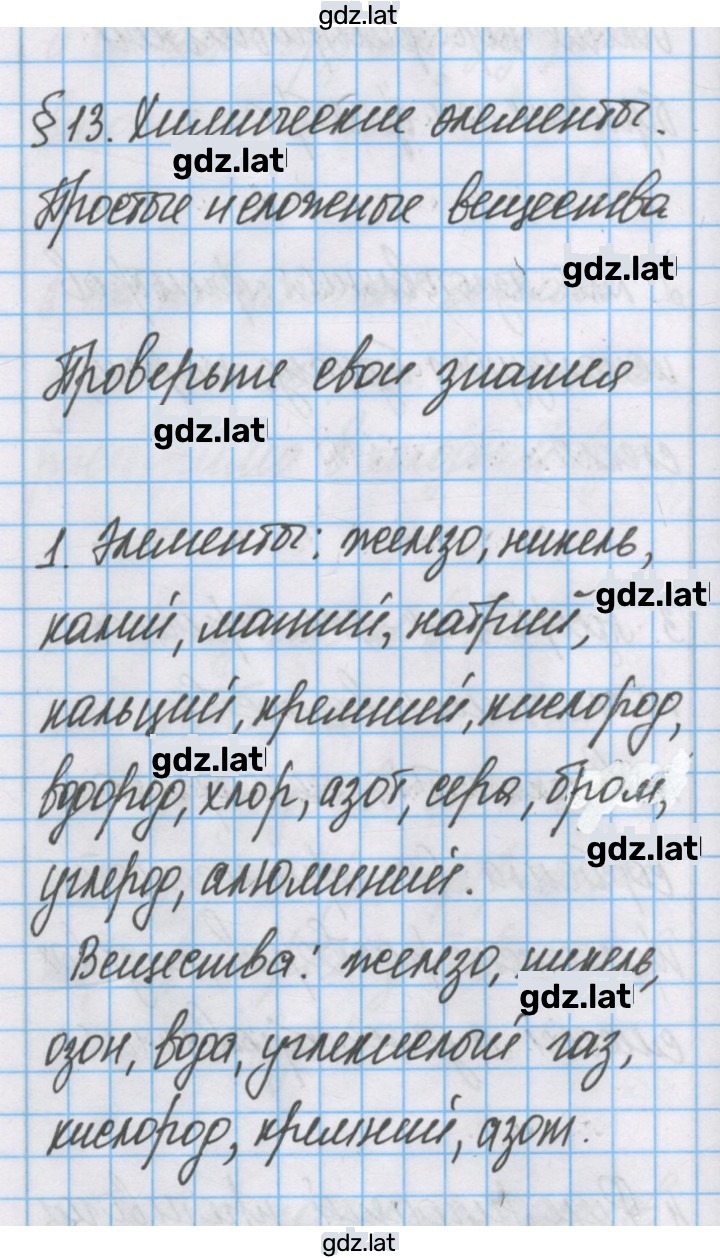 gdz.lat
§ 13. Химические элементы.
gdz.lat
Простые и сложные вещества
gdz.lat
Проверьте свои знания
gdz.lat
1. Элементы: железо, никель,
gdz.lat
калий, магний, натрий,
кальций, кремний, кислород,
gdz.lat
водород, хлор, азот, сера, бром,
gdz.lat
углерод, алюминий.
Вещества: железо, никель,
gdz.lat
озон, вода, углекислый газ,
кислород, кремний, азот.
gdz.lat